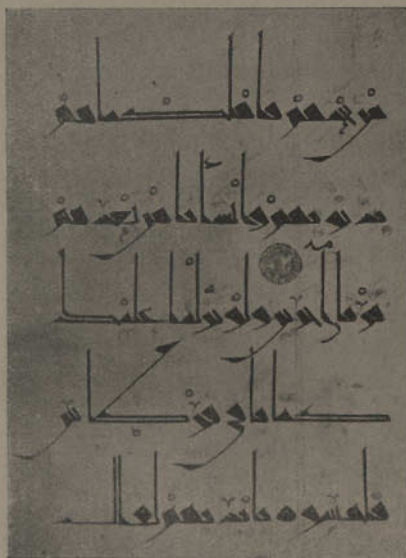 من تحتهم فاهلكناهم
بذنوبهم وانشانا من بعدهم
قرنا آخرين ولو نزلنا عليك
كتابا في قرطاس
فلمسوه بايديهم لقال